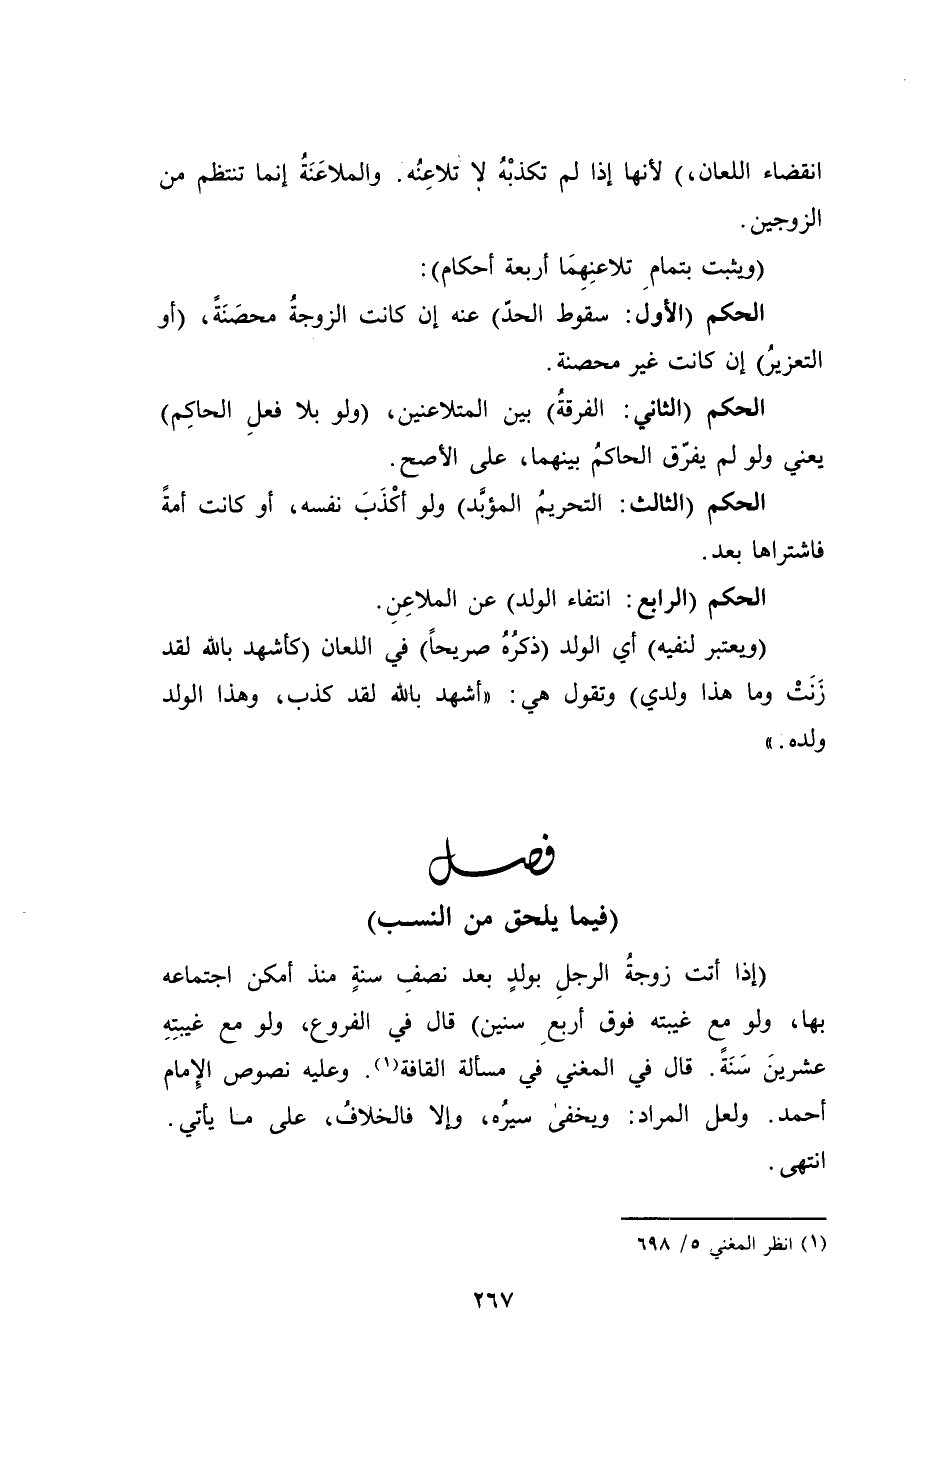 انقضاء اللعان،) لأنها إذا لم تكذبْهُ لا تُلاعِنُه. والملاعَنَةُ إنما تنتظم من
الزوجين.
(ويثبت بتمامِ تلاعنِهِمَا أربعة أحكام):
الحكم (الأول: سقوط الحدّ) عنه إن كانت الزوجةُ محصَنَةً، (أو
التعزيرُ) إن كانت غير محصنة.
الحكم (الثاني: الفرقةُ) بين المتلاعنين، (ولو بلا فعلِ الحاكِم)
يعني ولو لم يفرّق الحاكمُ بينهما، على الأصح.
الحكم (الثالث: التحريمُ المؤبَّد) ولو أكْذَبَ نفسه، أو كانت أمةً
فاشتراها بعد.
الحكم (الرابع: انتفاء الولد) عن الملاعِنِ.
(ويعتبر لنفيه) أي الولد (ذكرُهُ صريحاً) في اللعان (كأشهد بالله لقد
زَنَتْ وما هذا ولدي) وتقول هي: «أشهد بالله لقد كذب، وهذا الولد
ولده.»
فصل
(فيما يلحق من النسب)
(إذا أتت زوجةُ الرجلِ بولدٍ بعد نصفِ سنةٍ منذ أمكن اجتماعه
بها، ولو مع غيبته فوق أربعِ سنين) قال في الفروع، ولو مع غيبتِهِ
عشرينَ سَنَةً. قال في المغني في مسألة القافة(١). وعليه نصوص الإِمام
أحمد. ولعل المراد: ويخفىٰ سيرُه، وإلا فالخلافُ، على ما يأتي.
انتهى.
(١) انظر المغني ٥/ ٦٩٨
٢٦٧